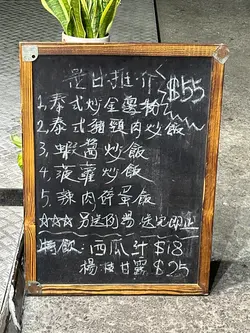 是日推介 $55
1. 泰式炒金邊粉
2. 泰式豬頸肉炒飯
3. 蝦醬炒飯
4. 菠蘿炒飯
5. 辣肉碎蛋飯
☆☆☆ 另送例湯 送完即止
特飲: 西瓜汁 $18
楊枝甘露 $25